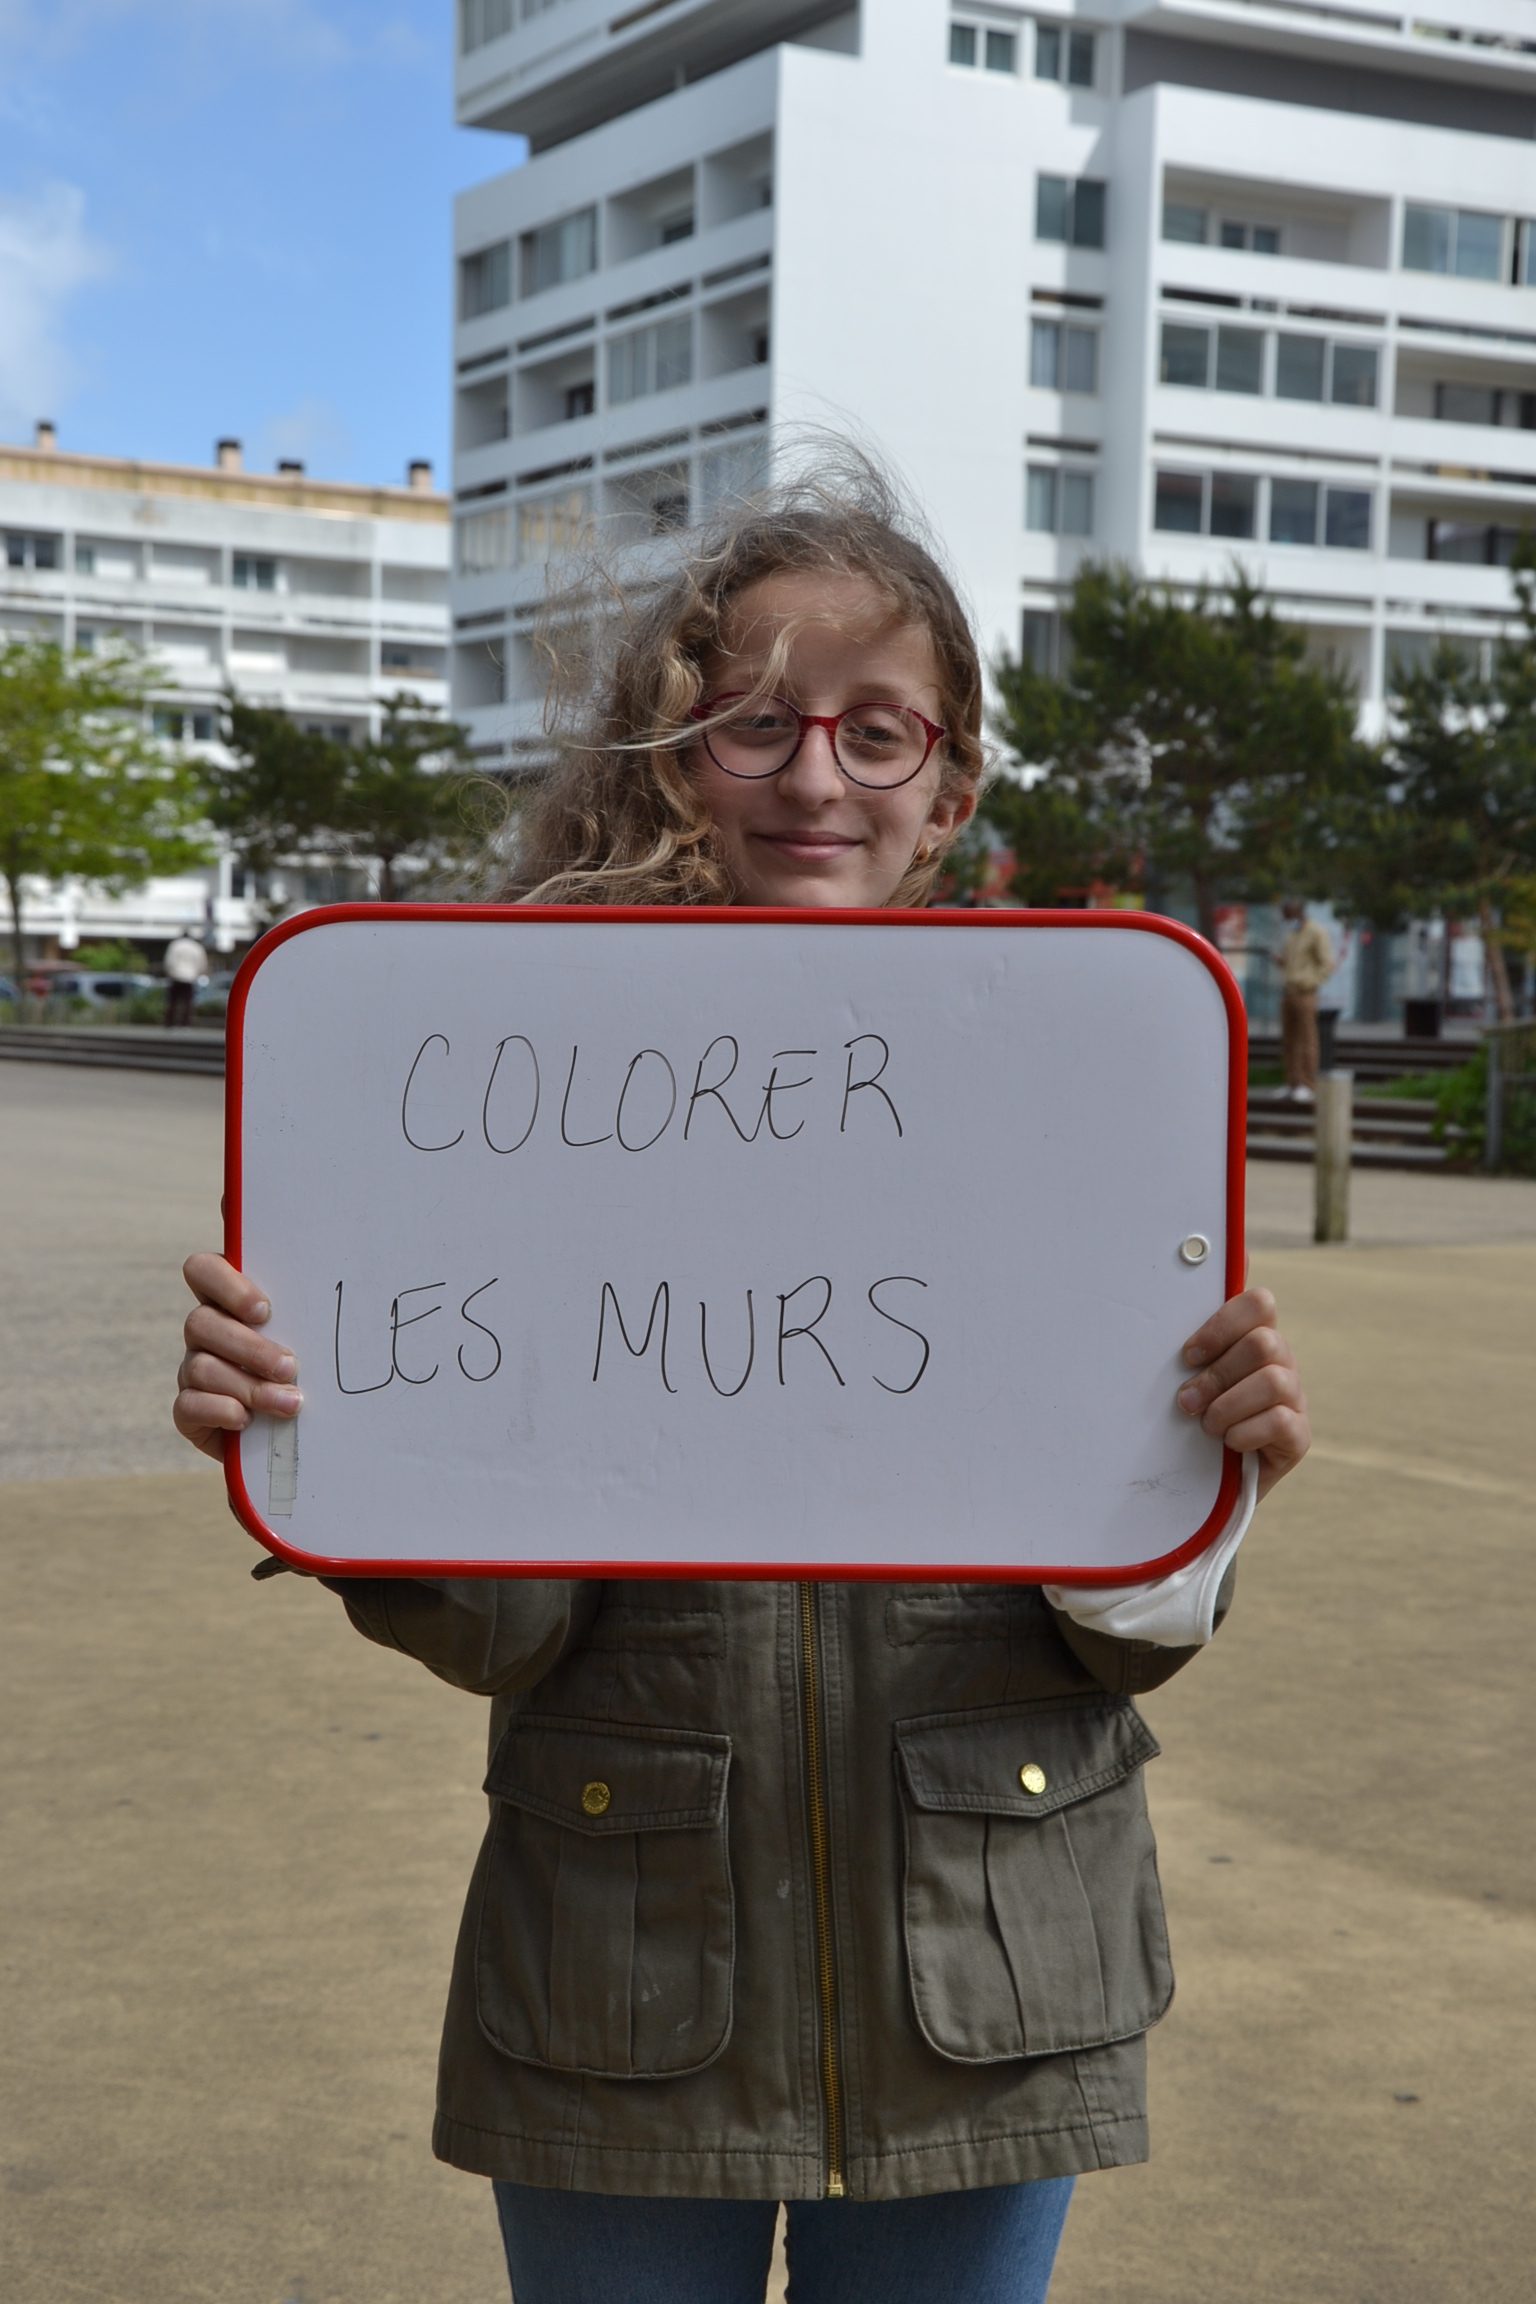 COLORER
LES MURS